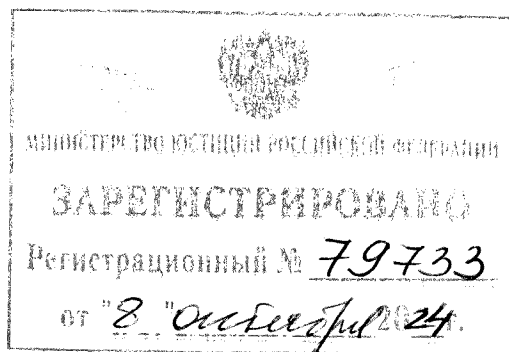 МИНИСТЕРСТВО ЮСТИЦИИ РОССИЙСКОЙ ФЕДЕРАЦИИ
ЗАРЕГИСТРИРОВАНО
Регистрационный № 79733
от "8" октября 2024г.